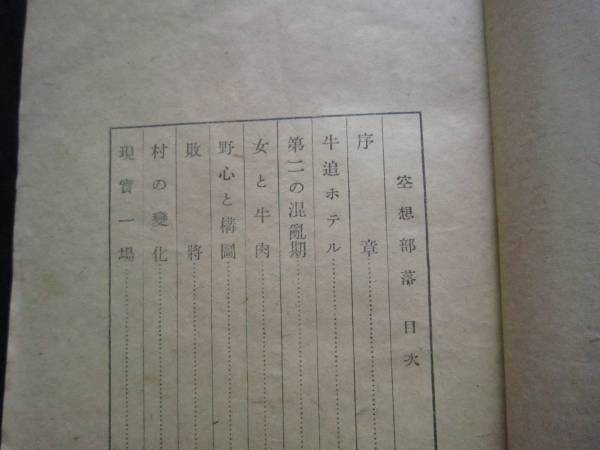 空想部落 目次
序章
牛追ホテル
第二の混亂期
女と牛肉
野心と構圖
敗將
村の變化
現實一場